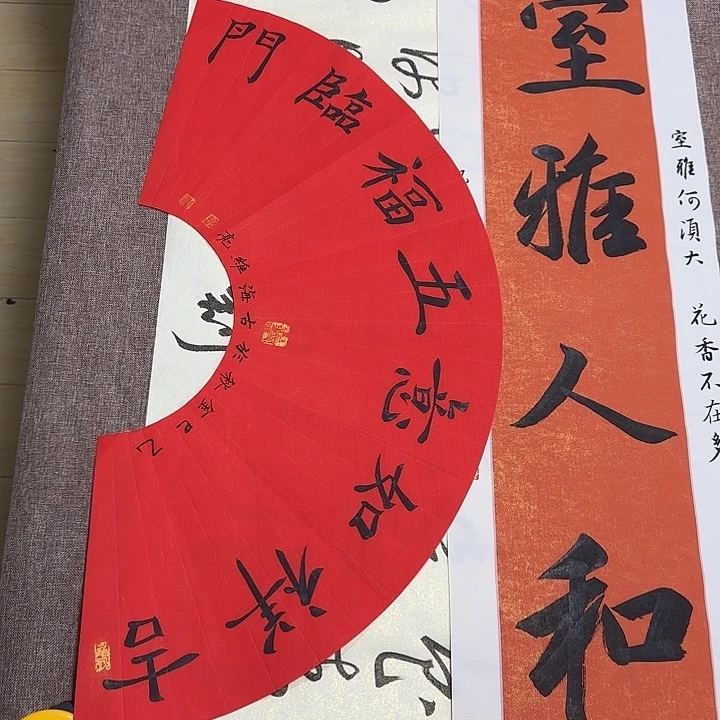 吉祥如意五福臨門
乙巳金秋於古海維亮
室雅人和
室雅何須大 花香不在多